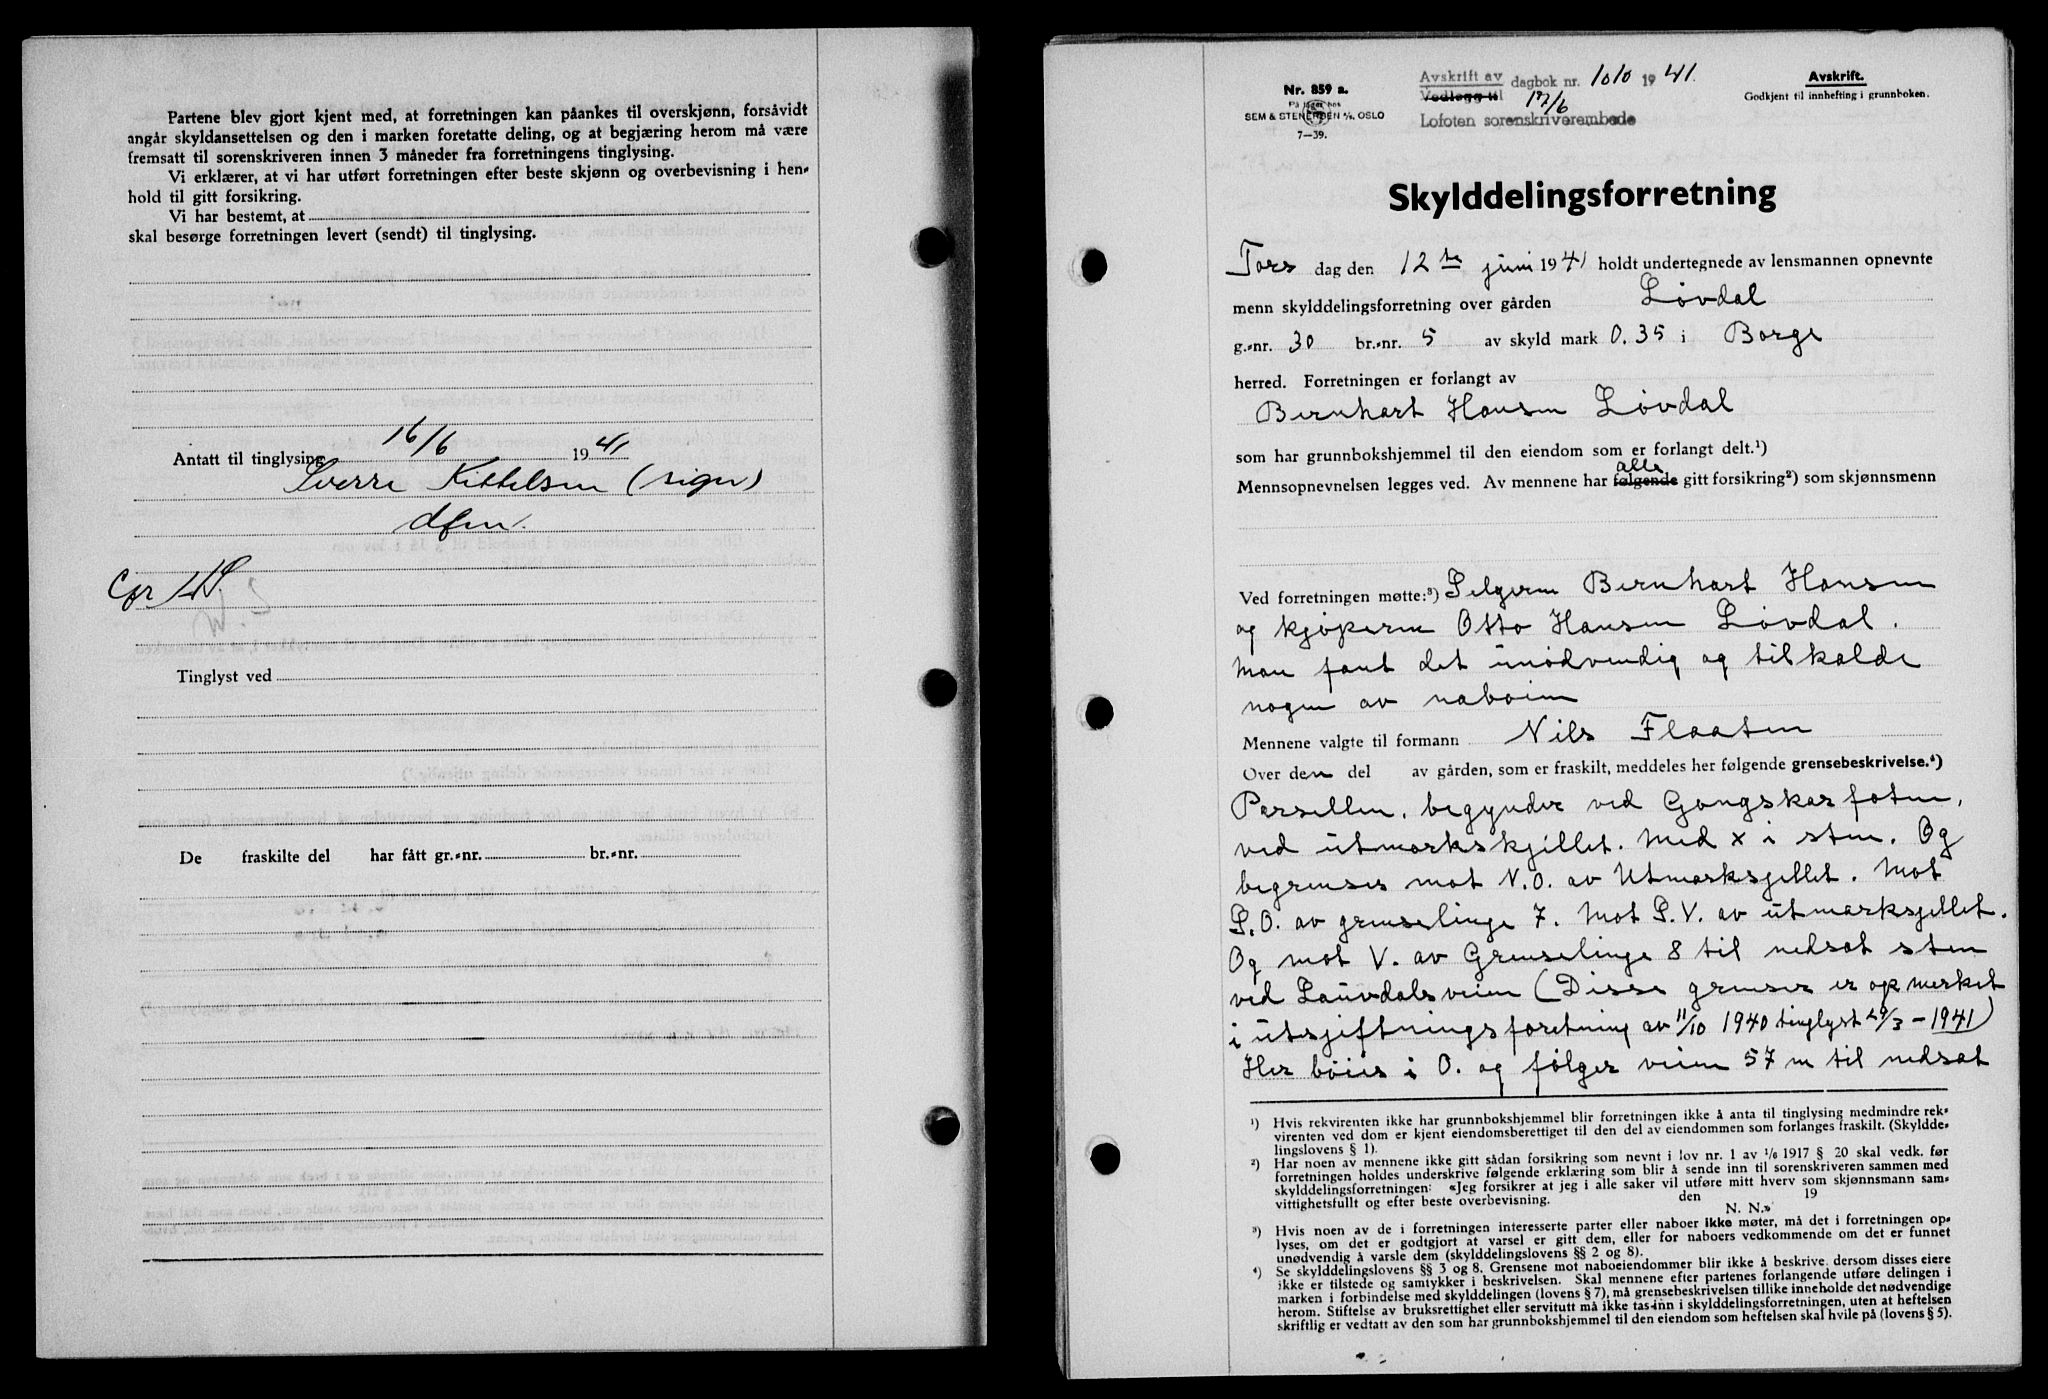 Partene blev gjort kjent med, at forretningen kan påankes til overskjønn, forsåvidt
angår skyldansettelsen og den i marken foretatte deling, og at begjæring herom må være
fremsatt til sorenskriveren innen 3 måneder fra forretningens tinglysing.
Vi erklærer, at vi har utført forretningen efter beste skjønn og overbevisning i hen-
hold til gitt forsikring.
Vi har bestemt, at
skal besørge forretningen levert (sendt) til tinglysing.
Antatt til tinglysing 16/6 1941
Sverre Kittelsen (sign)
dfm.
Tinglyst ved
De fraskilte del har fått gr.-nr. br.-nr.
Nr. 859 a.
På lager hos
SEM & STENERSEN A/S, OSLO
7—39.
Avskrift av dagbok nr. 1010 1941.
Vedlegg til 17/6
Lofoten sorenskriverembede
Avskrift.
Godkjent til innhefting i grunnboken.
Skylddelingsforretning
Tors dag den 12te juni 1941 holdt undertegnede av lensmannen opnevnte
menn skylddelingsforretning over gården Løvdal
g.-nr. 30 br.-nr. 5 av skyld mark 0.35 i Borge
herred. Forretningen er forlangt av
Bernhart Hansen Løvdal
som har grunnbokshjemmel til den eiendom som er forlangt delt.¹)
Mennsopnevnelsen legges ved. Av mennene har følgende alle gitt forsikring²) som skjønnsmenn
Ved forretningen møtte:³) Selgeren Bernhart Hansen
og kjøperen Otto Hansen Løvdal.
Man fant det unødvendig og tilkalde
nogen av naboene
Mennene valgte til formann Nils Flaaten
Over den del av gården, som er fraskilt, meddeles her følgende grensebeskrivelse.⁴)
Parsellen, begynder ved Gongskarfoten,
ved utmarkskjillet. Med x i sten. Og
begrenses mot N.O. av Utmarksjellet. Mot
S.O. av grenselinge 7. Mot S.V. av utmarksjellet.
Og mot V. av Grenselinge 8 til nedsat sten
ved Lauvdalsveien (Disse grenser er op merket
i utsjiftningsforetning av 11/10 1940 tinglyst 29/3 - 1941)
Her bøies i O. og følger veien 57 m til nedsat
¹) Hvis rekvirenten ikke har grunnbokshjemmel blir forretningen ikke å anta til tinglysing medmindre rek-
virenten ved dom er kjent eiendomsberettiget til den del av eiendommen som forlanges fraskilt. (Skyldde-
lingslovens § 1).
²) Har noen av mennene ikke gitt sådan forsikring som nevnt i lov nr. 1 av 1/6 1917 § 20 skal vedk. før
forretningen holdes underskrive følgende erklæring som blir å sende inn til sorenskriveren sammen med
skylddelingsforretningen: «Jeg forsikrer at jeg i alle saker vil utføre mitt hverv som skjønnsmann sam-
vittighetsfullt og efter beste overbevisning. den 19
N. N.»
³) Hvis noen av de i forretningen interesserte parter eller naboer ikke møter, må det i forretningen op-
lyses, om det er godtgjort at varsel er gitt dem, eller for naboers vedkommende om det er funnet
unødvendig å varsle dem (skylddelingslovens §§ 2 og 8).
⁴) Se skylddelingslovens §§ 3 og 8. Grensene mot naboeiendommer blir ikke å beskrive, dersom disses eiere
ikke er tilstede og samtykker i beskrivelsen. Skal mennene efter partenes forlangende utføre delingen i
marken i forbindelse med skylddelingen (lovens § 7), må grensebeskrivelsen tillike inneholde det nødvendige
herom. Stiftelse av bruksrettighet eller servitutt må ikke tas inn i skylddelingsforretningen, uten at heftelsen
skriftlig er vedtatt av den som har grunnbokshjemmel til den eiendom som heftelsen skal hvile på (lovens § 5).